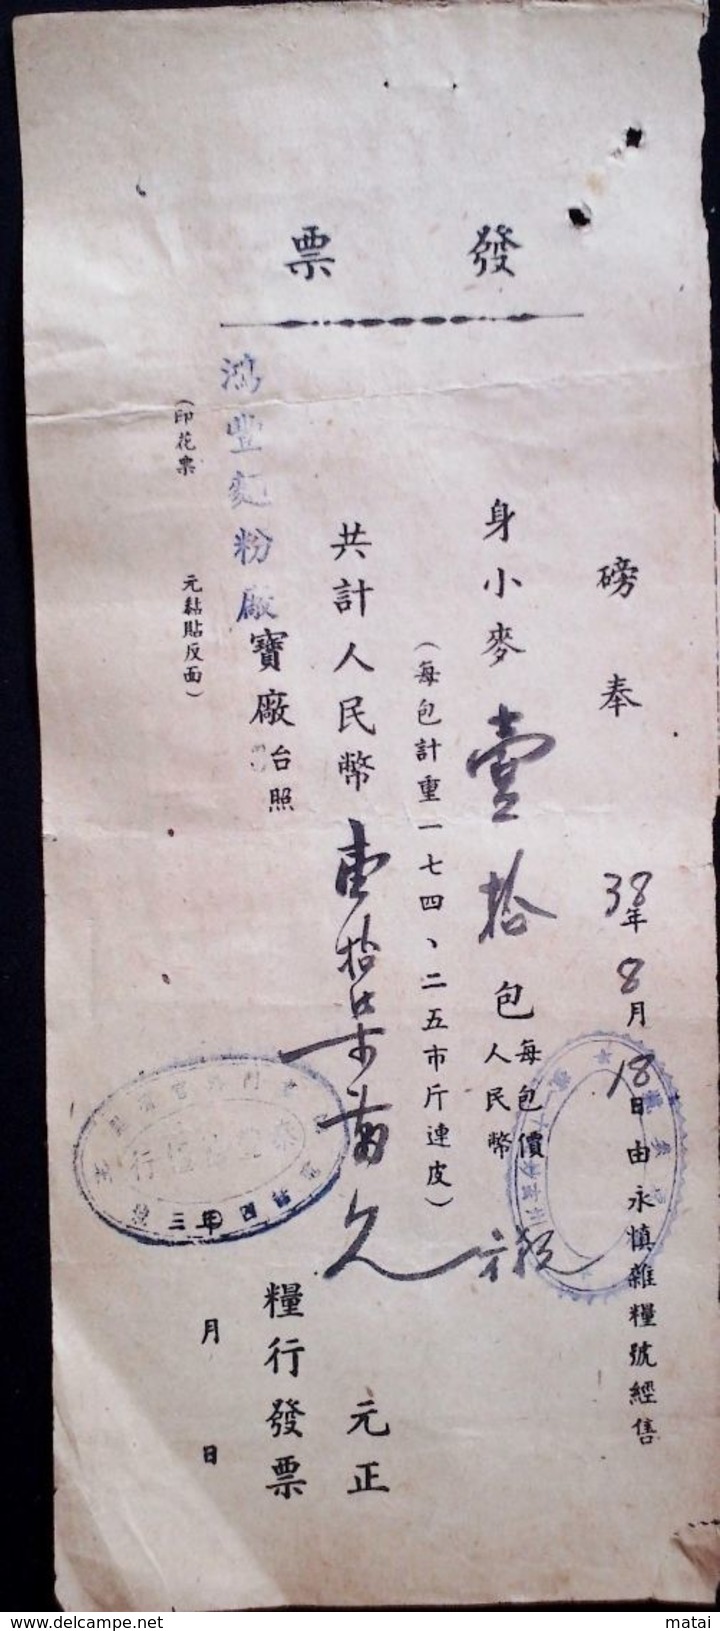 發票
磅奉
38年8月18日由永慎雜糧號經售
身小麥壹拾包每包價人民幣
(每包計重一七四、二五市斤連皮)
共計人民幣壹拾柒萬
元正
鴻豐麵粉廠寶廠台照
糧行發票
(印花票
元黏貼反面)
月
日
matai
www.delcampe.net